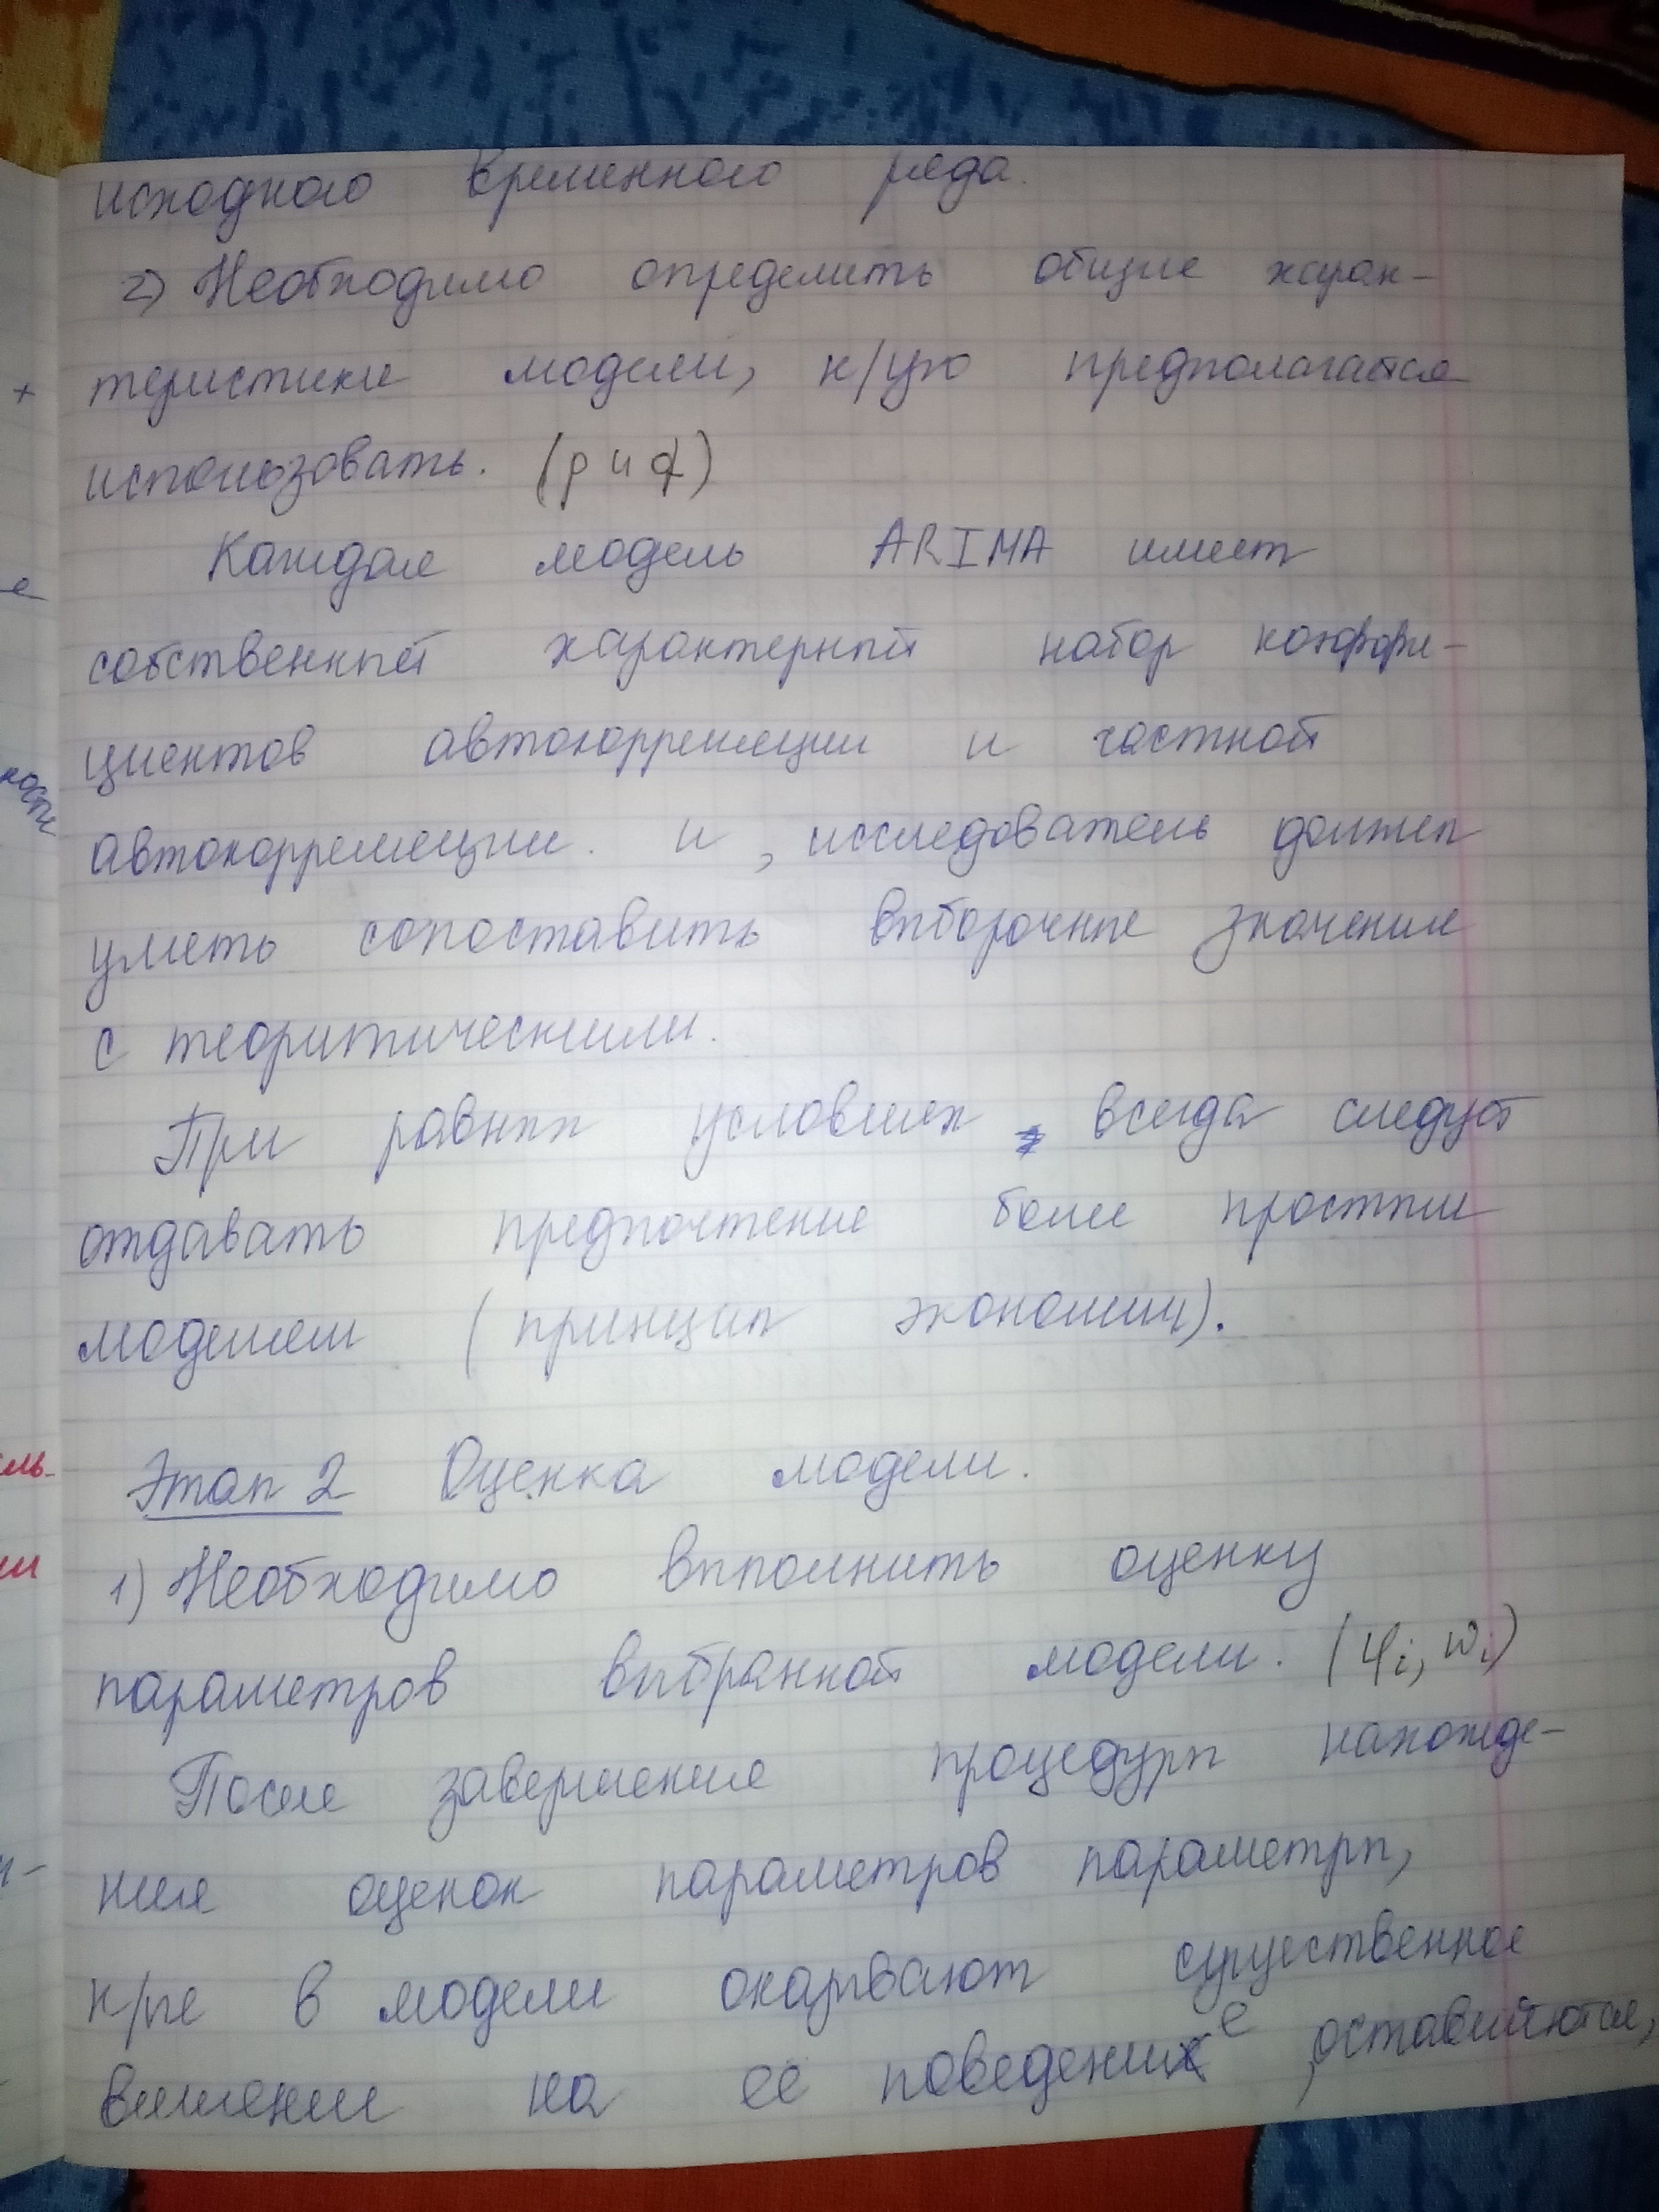 исходного временного ряда.
2) Необходимо определить общие харак-
теристики модели, к/ую предполагается
использовать. (p и q)
Каждая модель ARIMA имеет
собственный характерный набор коэффи-
циентов автокорреляции и частной
автокорреляции. и , исследователь должен
уметь сопоставить выборочные значения
с теоритическими.
При равных условиях всегда следует
отдавать предпочтение более простым
моделям (принцип экономии).
Этап 2 Оценка модели.
1) Необходимо выполнить оценку
параметров выбранной модели. (φi, wi)
После завершения процедуры нахожде-
ния оценок параметров параметры,
к/ые в модели оказывают существенное
влиянии на её поведение, оставляются,